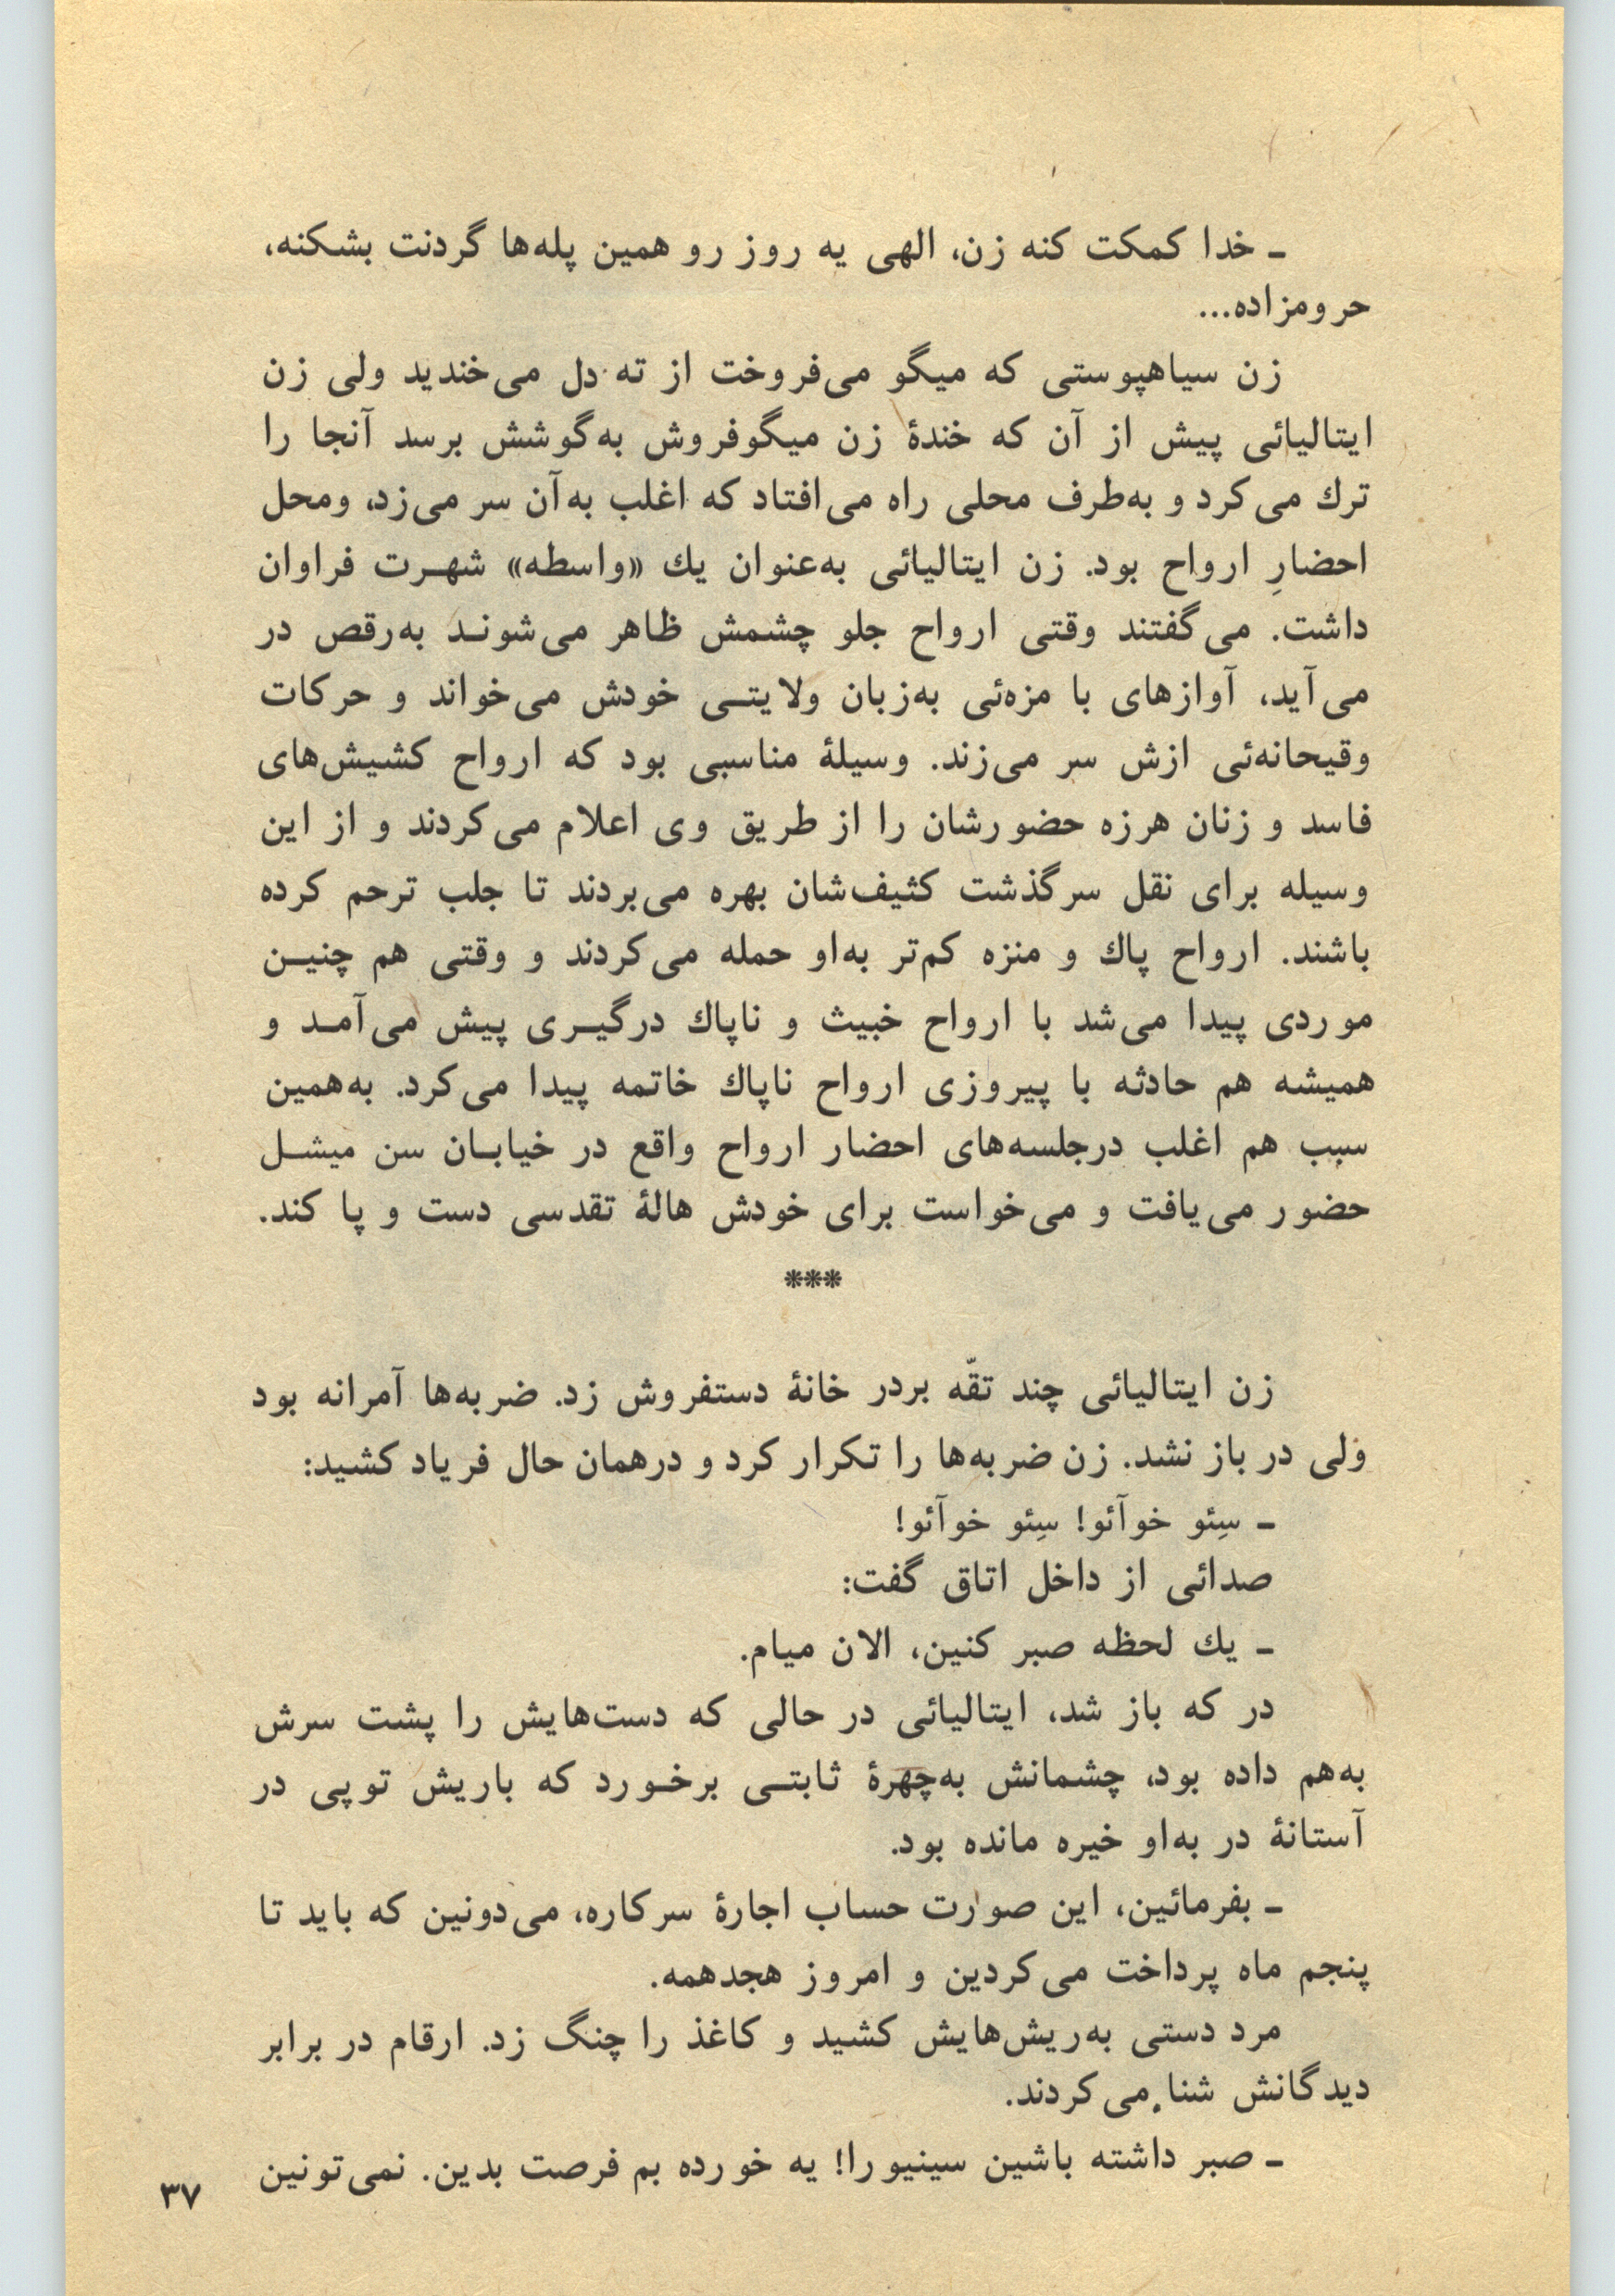 ـ خدا کمکت کنه زن، الهی یه روز رو همین پله‌ها گردنت بشکنه،
حرومزاده...
زن سیاهپوستی که میگو می‌فروخت از ته دل می‌خندید ولی زن
ایتالیائی پیش از آن که خندهٔ زن میگوفروش به‌گوشش برسد آنجا را
ترك می‌کرد و به‌طرف محلی راه می‌افتاد که اغلب به‌آن سر می‌زد، ومحل
احضارِ ارواح بود. زن ایتالیائی به‌عنوان یك «واسطه» شهـرت فراوان
داشت. می‌گفتند وقتی ارواح جلو چشمش ظاهر می‌شونـد به‌رقص در
می‌آید، آوازهای با مزه‌ئی به‌زبان ولایتـی خودش می‌خواند و حرکات
وقیحانه‌ئی ازش سر می‌زند. وسیلهٔ مناسبی بود که ارواح کشیش‌های
فاسد و زنان هرزه حضورشان را از طریق وی اعلام می‌کردند و از این
وسیله برای نقل سرگذشت کثیف‌شان بهره می‌بردند تا جلب ترحم کرده
باشند. ارواح پاك و منزه کم‌تر به‌او حمله می‌کردند و وقتی هم چنیـن
موردی پیدا می‌شد با ارواح خبیث و ناپاك درگیـری پیش می‌آمـد و
همیشه هم حادثه با پیروزی ارواح ناپاك خاتمه پیدا می‌کرد. به‌همین
سبب هم اغلب درجلسه‌های احضار ارواح واقع در خیابـان سن میشـل
حضور می‌یافت و می‌خواست برای خودش هالهٔ تقدسی دست و پا کند.
***
زن ایتالیائی چند تقّه بردر خانهٔ دستفروش زد. ضربه‌ها آمرانه بود
ولی در باز نشد. زن ضربه‌ها را تکرار کرد و درهمان حال فریاد کشید:
ـ سِئو خوآئو! سِئو خوآئو!
صدائی از داخل اتاق گفت:
ـ یك لحظه صبر کنین، الان میام.
در که باز شد، ایتالیائی در حالی که دست‌هایش را پشت سرش
به‌هم داده بود، چشمانش به‌چهرهٔ ثابتـی برخـورد که باریش توپی در
آستانهٔ در به‌او خیره مانده بود.
ـ بفرمائین، این صورت حساب اجارهٔ سرکاره، می‌دونین که باید تا
پنجم ماه پرداخت می‌کردین و امروز هجدهمه.
مرد دستی به‌ریش‌هایش کشید و کاغذ را چنگ زد. ارقام در برابر
دیدگانش شنا می‌کردند.
ـ صبر داشته باشین سینیورا! یه خورده بم فرصت بدین. نمی‌تونین
۳۷